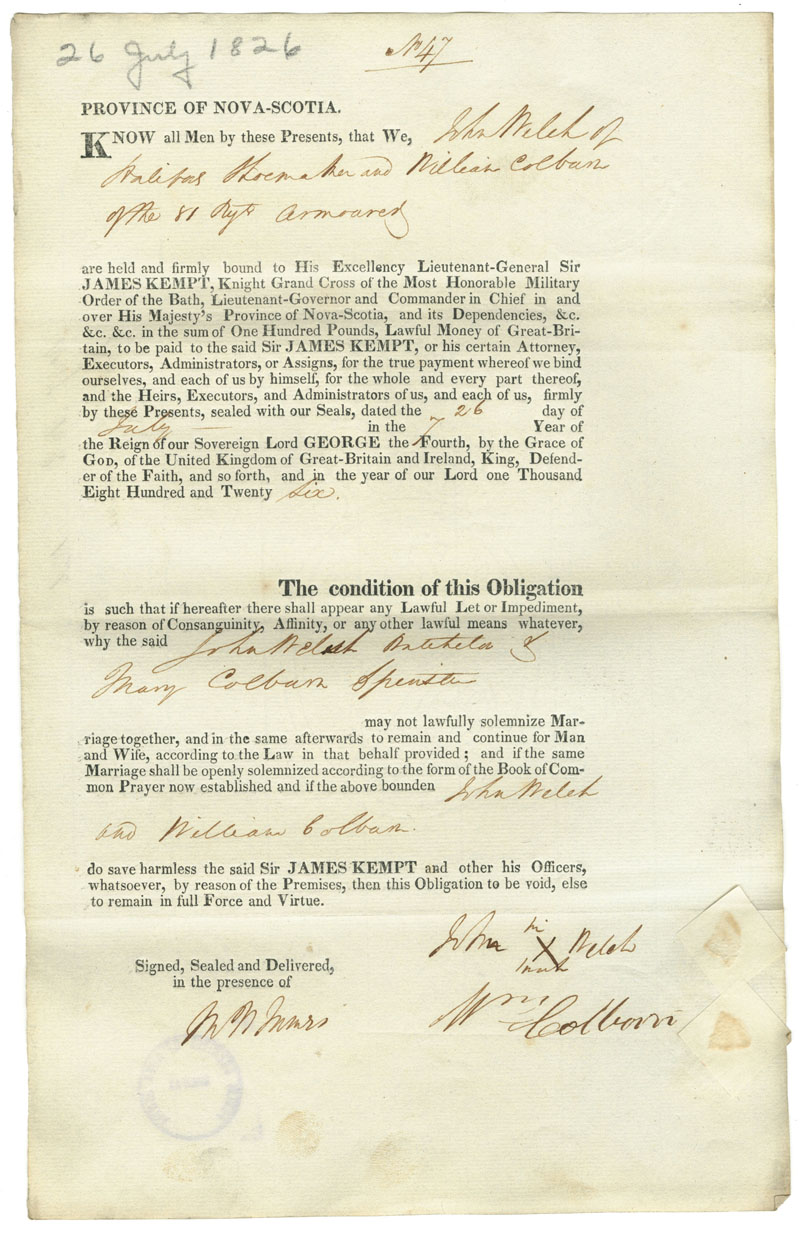 26 July 1826
No 47
PROVINCE OF NOVA-SCOTIA.
KNOW all Men by these Presents, that We, John Welsh of
Halifax Shoemaker and William Colburn
of the 81 Regt Armourer
are held and firmly bound to His Excellency Lieutenant-General Sir
JAMES KEMPT, Knight Grand Cross of the Most Honorable Military
Order of the Bath, Lieutenant-Governor and Commander in Chief in and
over His Majesty's Province of Nova-Scotia, and its Dependencies, &c.
&c. &c. in the sum of One Hundred Pounds, Lawful Money of Great-Bri-
tain, to be paid to the said Sir JAMES KEMPT, or his certain Attorney,
Executors, Administrators, or Assigns, for the true payment whereof we bind
ourselves, and each of us by himself, for the whole and every part thereof,
and the Heirs, Executors, and Administrators of us, and each of us, firmly
by these Presents, sealed with our Seals, dated the 26 day of
July in the 7 Year of
the Reign of our Sovereign Lord GEORGE the Fourth, by the Grace of
GOD, of the United Kingdom of Great-Britain and Ireland, King, Defend-
er of the Faith, and so forth, and in the year of our Lord one Thousand
Eight Hundred and Twenty Six.
The condition of this Obligation
is such that if hereafter there shall appear any Lawful Let or Impediment,
by reason of Consanguinity, Affinity, or any other lawful means whatever,
why the said John Welsh Batchelor &
Mary Colburn Spinster
may not lawfully solemnize Mar-
riage together, and in the same afterwards to remain and continue for Man
and Wife, according to the Law in that behalf provided; and if the same
Marriage shall be openly solemnized according to the form of the Book of Com-
mon Prayer now established and if the above bounden John Welsh
and William Colburn.
do save harmless the said Sir JAMES KEMPT and other his Officers,
whatsoever, by reason of the Premises, then this Obligation to be void, else
to remain in full Force and Virtue.
John his X mark Welsh
Signed, Sealed and Delivered,
in the presence of
Wm Colborn